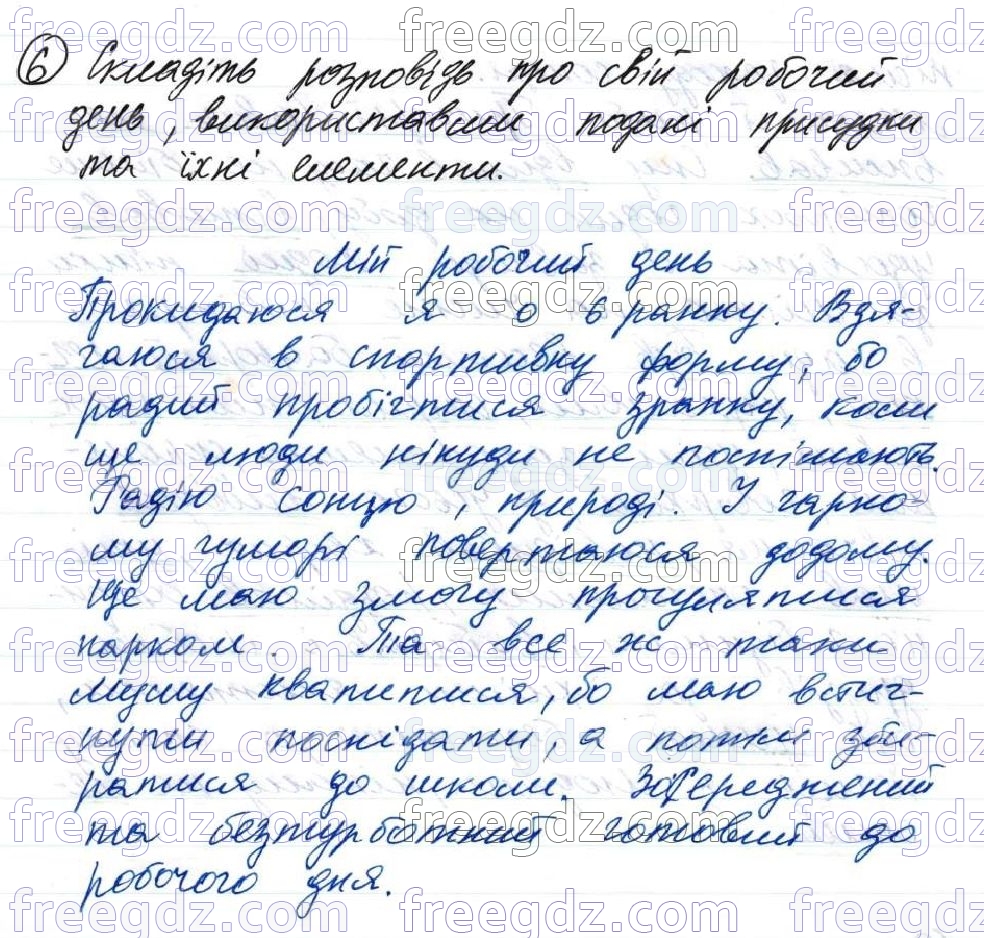 6 Складіть розповідь про свій робочий
день, використавши подані присудки
та їхні елементи.
Мій робочий день
Прокидаюся я о 6 ранку. Вдя-
гаюся в спортивну форму, бо
радий пробігтися зранку, коли
ще люди нікуди не поспішають.
Радію сонцю, природі. У гарно-
му гуморі повертаюся додому.
Ще маю змогу прогулятися
парком. Та все ж таки
мушу квапитися, бо маю встиг-
нути поснідати, а потім зби-
ратися до школи. Зосереджений
та безтурботний готовий до
робочого дня.
freegdz.com